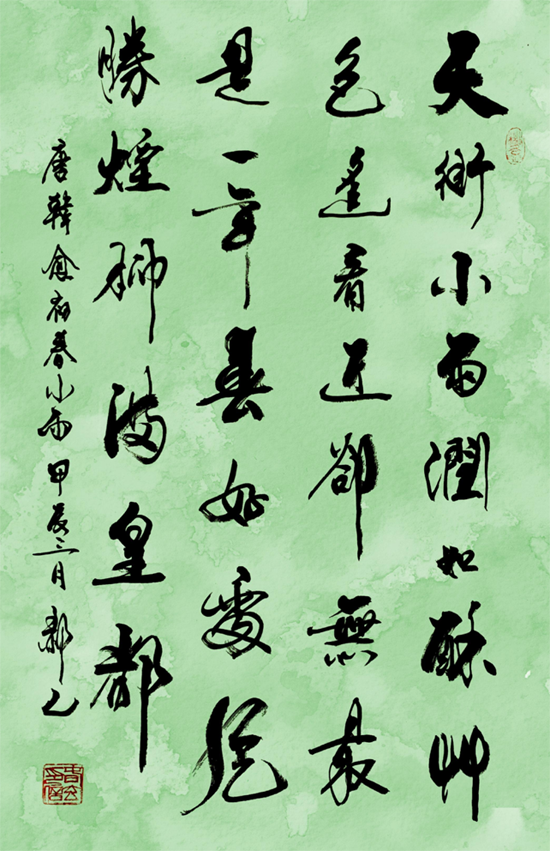 天街小雨潤如酥艸
色遙看近卻無最
是一年春好處絕
勝煙柳滿皇都
唐韓愈初春小雨甲辰三月